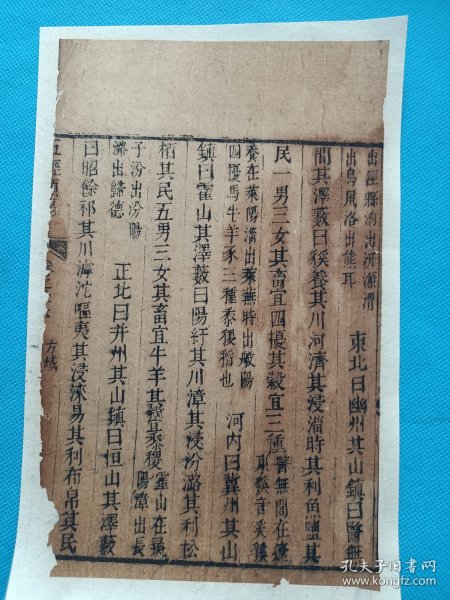 出涇縣洧出汧源渭
出鳥鼠洛出熊耳
東北曰幽州其山鎮曰醫無
閭其澤藪曰貕養其川河濟其浸淄時其利魚鹽其
民一男三女其畜宜四擾其穀宜三種
醫無閭在遼
東貕音奚貕
養在萊陽淄出萊蕪時出般陽
四擾馬牛羊豕三種黍稷稻也
河內曰冀州其山
鎮曰霍山其澤藪曰陽紆其川漳其浸汾潞其利松
栢其民五男三女其畜宜牛羊其穀宜黍稷
霍山在彘
陽漳出長
子汾出汾陽
潞出歸德
正北曰并州其山鎮曰恒山其澤藪
曰昭餘祁其川滹沱嘔夷其浸淶易其利布帛其民
五經
方域
孔夫子旧书网
www.kongfz.com